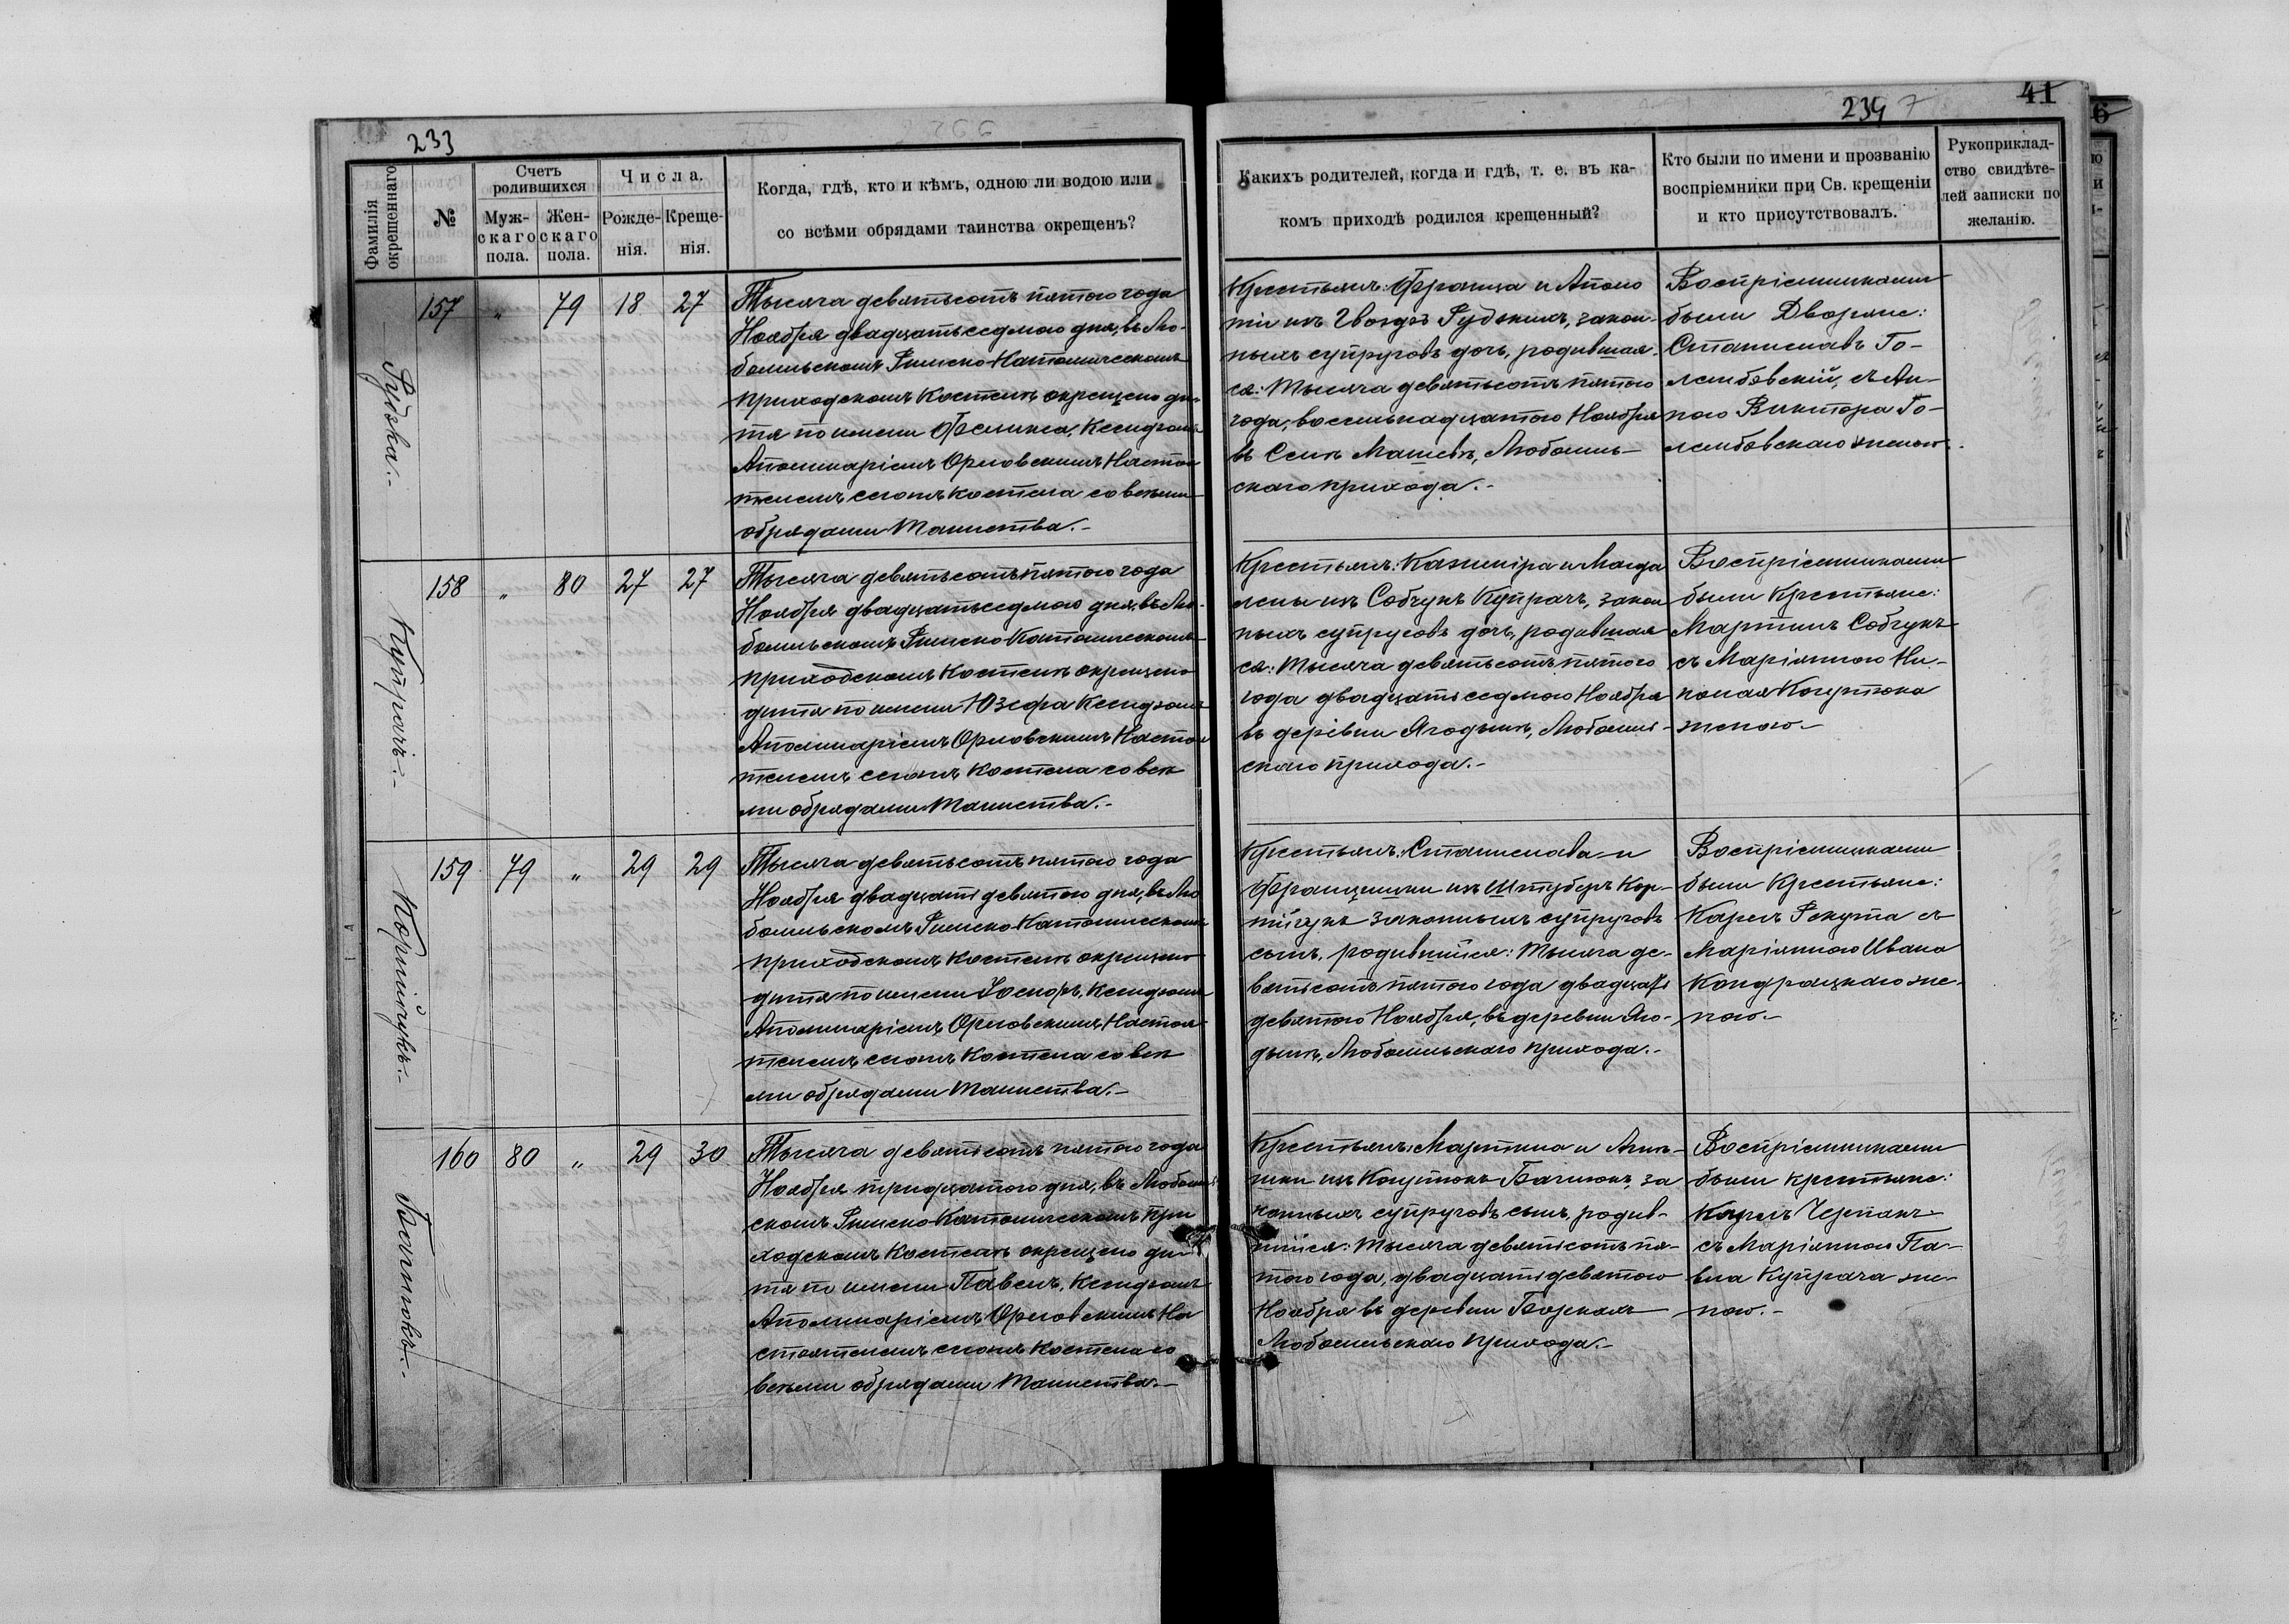 233
Фамилія окрещеннаго
№
Счетъ родившихся
Муж-скаго пола.
Жен-скаго пола.
Числа.
Рожде-нія.
Креще-нія.
Когда, гдѣ, кто и кѣмъ, одною ли водою или
со всѣми обрядами таинства окрещенъ?
Рудзка.-
157 „ 79 18 27
Тысяча девятьсотъ пятого года
Ноября двадцатьседмого дня, въ Лю-
бомльскомъ Римско-Католическомъ
приходскомъ Костелѣ окрещено ди-
тя по имени Феликса, Ксендзомъ
Аполинаріемъ Орловскимъ Настоя
телемъ сегожъ костела со всѣми
обрядами Таинства.-
Купрачъ.-
158 „ 80 27 27
Тысяча девятьсотъ пятого года
Ноября двадцатьседмого дня, въ Лю-
бомльскомъ Римско Католическомъ
приходскомъ Костелѣ окрещено
дитя по имени Юзефа Ксендзомъ
Аполинаріемъ Орловскимъ Настоя
телемъ сегожъ Костела со всѣ
ми обрядами Таинства.-
Корнійчукъ.-
159 79 „ 29 29
Тысяча девятьсотъ пятого года
Ноября двадцать девятого дня, въ Лю
бомльскомъ Римско-Католическомъ
приходскомъ Костелѣ окрещено
дитя по имени Іосифъ, Ксендзомъ
Аполинаріемъ Орловскимъ, Настоя
телемъ сегожъ Костела со всѣ
ми обрядами Таинства.-
Бачинокъ.-
160 80 „ 29 30
Тысяча девятьсотъ пятого года
Ноября тридцатого дня, въ Любомль
скомъ Римско Католическомъ При
ходскомъ Костелѣ окрещено ди
тя по имени Павелъ, Ксендзомъ
Аполинаріемъ Орловскимъ На
стоятелемъ сегожъ Костела со
всѣми обрядами Таинства.-
234 7
41
6
Какихъ родителей, когда и гдѣ, т. е. въ ка-
комъ приходѣ родился крещенный?
Кто были по имени и прозванію
воспріемники при Св. крещеніи
и кто присутствовалъ.
Рукоприклад-
ство свидѣте-
лей записки по
желанію.
Крестьянъ: Франца и Аполо
ніи изъ Гвоздзъ Рудзкихъ, закон-
ныхъ супруговъ дочь, родившая-
ся: Тысяча девятьсотъ пятого
года, восемьнадцатого Ноября
въ Селѣ Машевѣ, Любомль-
скаго прихода.-
Воспріемниками
были Дворяне:
Станиславъ Го-
лембовскій, съ Ан-
ною Виктора Го-
лембовскаго женою.
Крестьянъ: Казиміра и Магда
лены изъ Собчукъ Купрачъ, закон
ныхъ супруговъ дочь, родившая
ся: Тысяча девятьсотъ пятого
года двадцать седмого Ноября
въ деревни Ягодынѣ, Любомль-
скаго прихода.-
Воспріемниками
были Крестьяне:
Мартинъ Собчукъ
съ Маріянною Ни-
колая
женою.-
Крестьянъ: Станислава и
Францишки изъ Штуберъ Кор-
нійчукъ законныхъ супруговъ
сынъ, родившійся: Тысяча де-
вятьсотъ пятого года двадцать
девятого Ноября, въ деревни Яго-
дынѣ, Любомльскаго прихода.-
Воспріемниками
были Крестьяне:
Карлъ Рекута съ
Маріянною Ивана
Кондрацкаго же-
ною.-
Крестьянъ: Мартина и Агнѣ-
шки изъ Бачинокъ, за
конныхъ супруговъ сынъ, родив-
шійся: Тысяча девятьсотъ пя-
того года, двадцать девятого
Ноября въ деревни
Любомльскаго прихода.-
Воспріемниками
были крестьяне:
Карлъ Черпакъ
съ Маріянною Па-
вла Купрача же-
ною.-